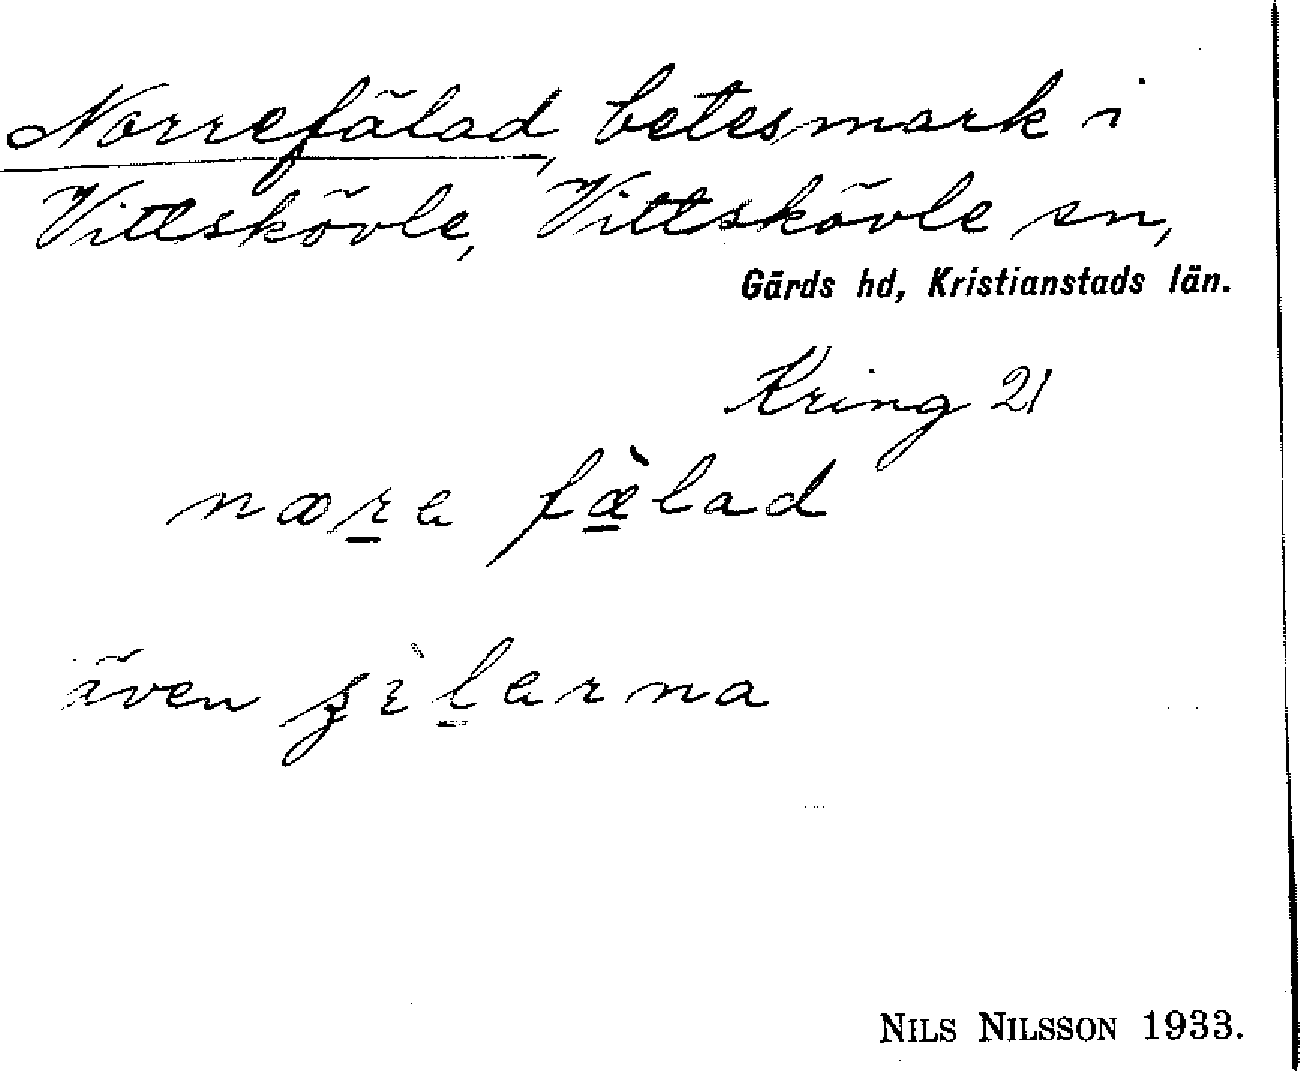 Norrefälad, betesmark i
Vittskövle, Vittskövle sn,
Gärds hd, Kristianstads län.
Kring 21
næra fæ̀lad
även
NILS NILSSON 1933.